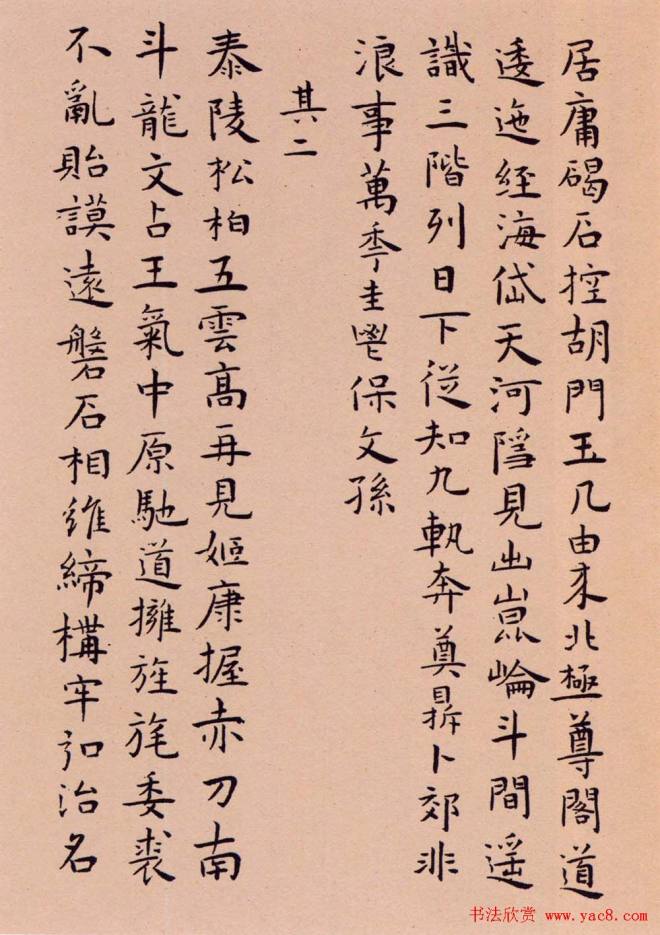 居庸碣石控胡門玉几由来北極尊閣道
逶迤經海岱天河隱見出崑崙斗間遥
識三階列日下從知九軌奔奠鼎卜郊非
浪事萬年圭鬯保文孫
其二
泰陵松柏五雲高再見姬康握赤刀南
斗龍文占王氣中原馳道擁旌旄委裘
不亂貽謨遠磐石相維締構牢弘治名
书法欣赏 www.yac8.com